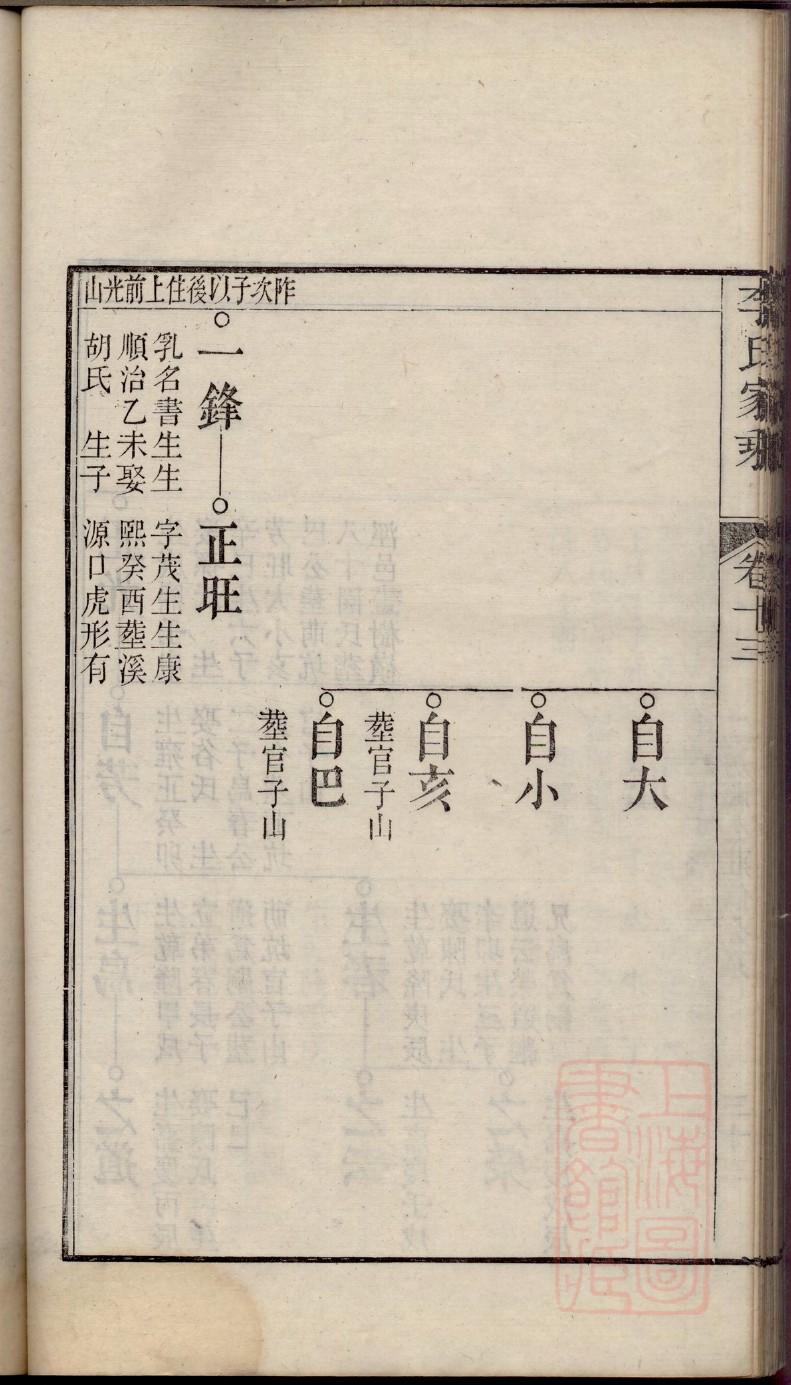 李氏家乘
卷十三
昨次子以後住上前光山
自大
自小
自亥
塟官子山
自巴
塟官子山
一鋒
乳名書生生
順治乙未娶
胡氏 生子
正旺
字茂生生康
熙癸酉塟溪
源口虎形有
上海圖
書館藏